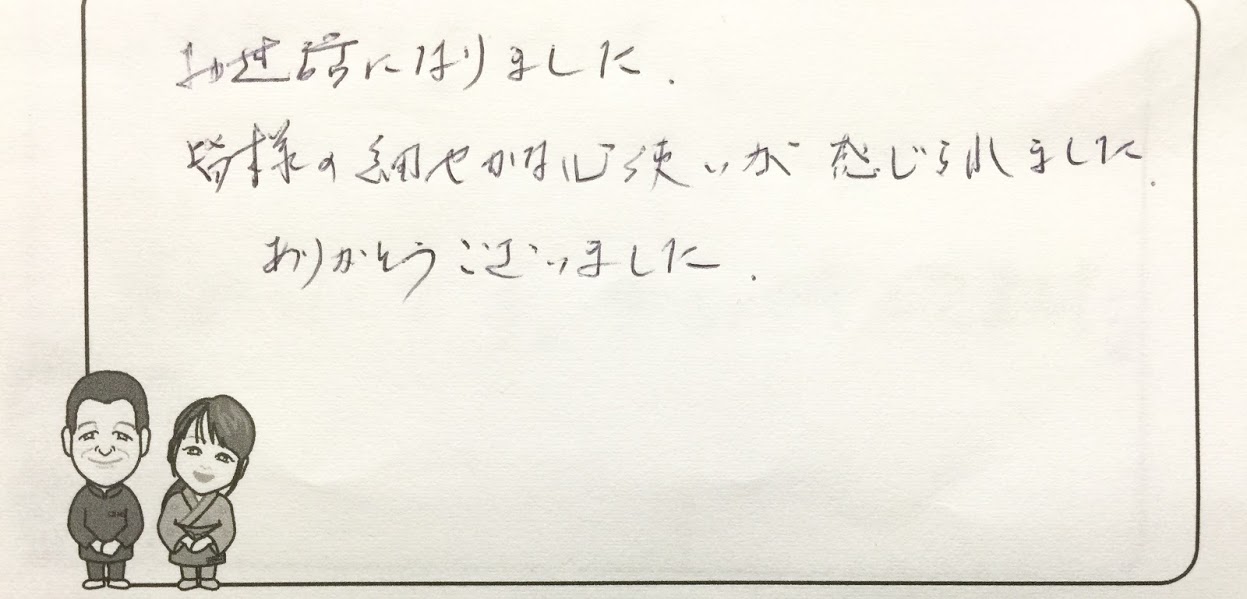 お世話になりました.
皆様の細やかな心使いが感じられました.
ありがとうございました.